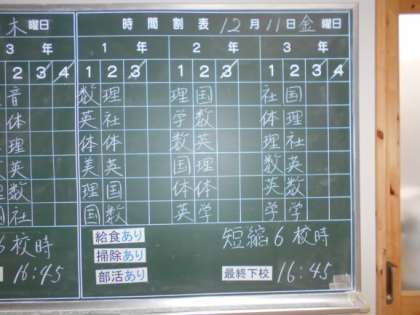 木曜日 時間割表 12月11日金曜日
3年 1年 2年 3年
1 2 3 4 1 2 3 1 2 3 1 2 3 4
音 数 理 理 国 社 国
体 英 社 学 数 体 理
理 体 体 数 英 理 社
英 美 英 国 理 数 英
数 理 国 体 体 英 数
国 社 国 数 英 学 学 学
6校時 給食あり 短縮6校時
掃除あり
16:45 部活あり 最終下校 16:45